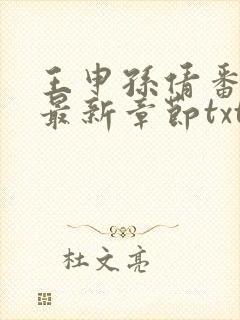 王申孫倩番
最新章節txt
杜文亮